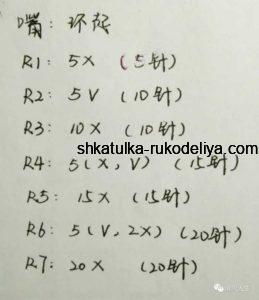 嘴: 环起
R1: 5X (5针)
R2: 5V (10针)
R3: 10X (10针)
shkatulka-rukodeliya.com
R4: 5(X, V) (15针)
R5: 15X (15针)
R6: 5(V, 2X) (20针)
R7: 20X (20针)